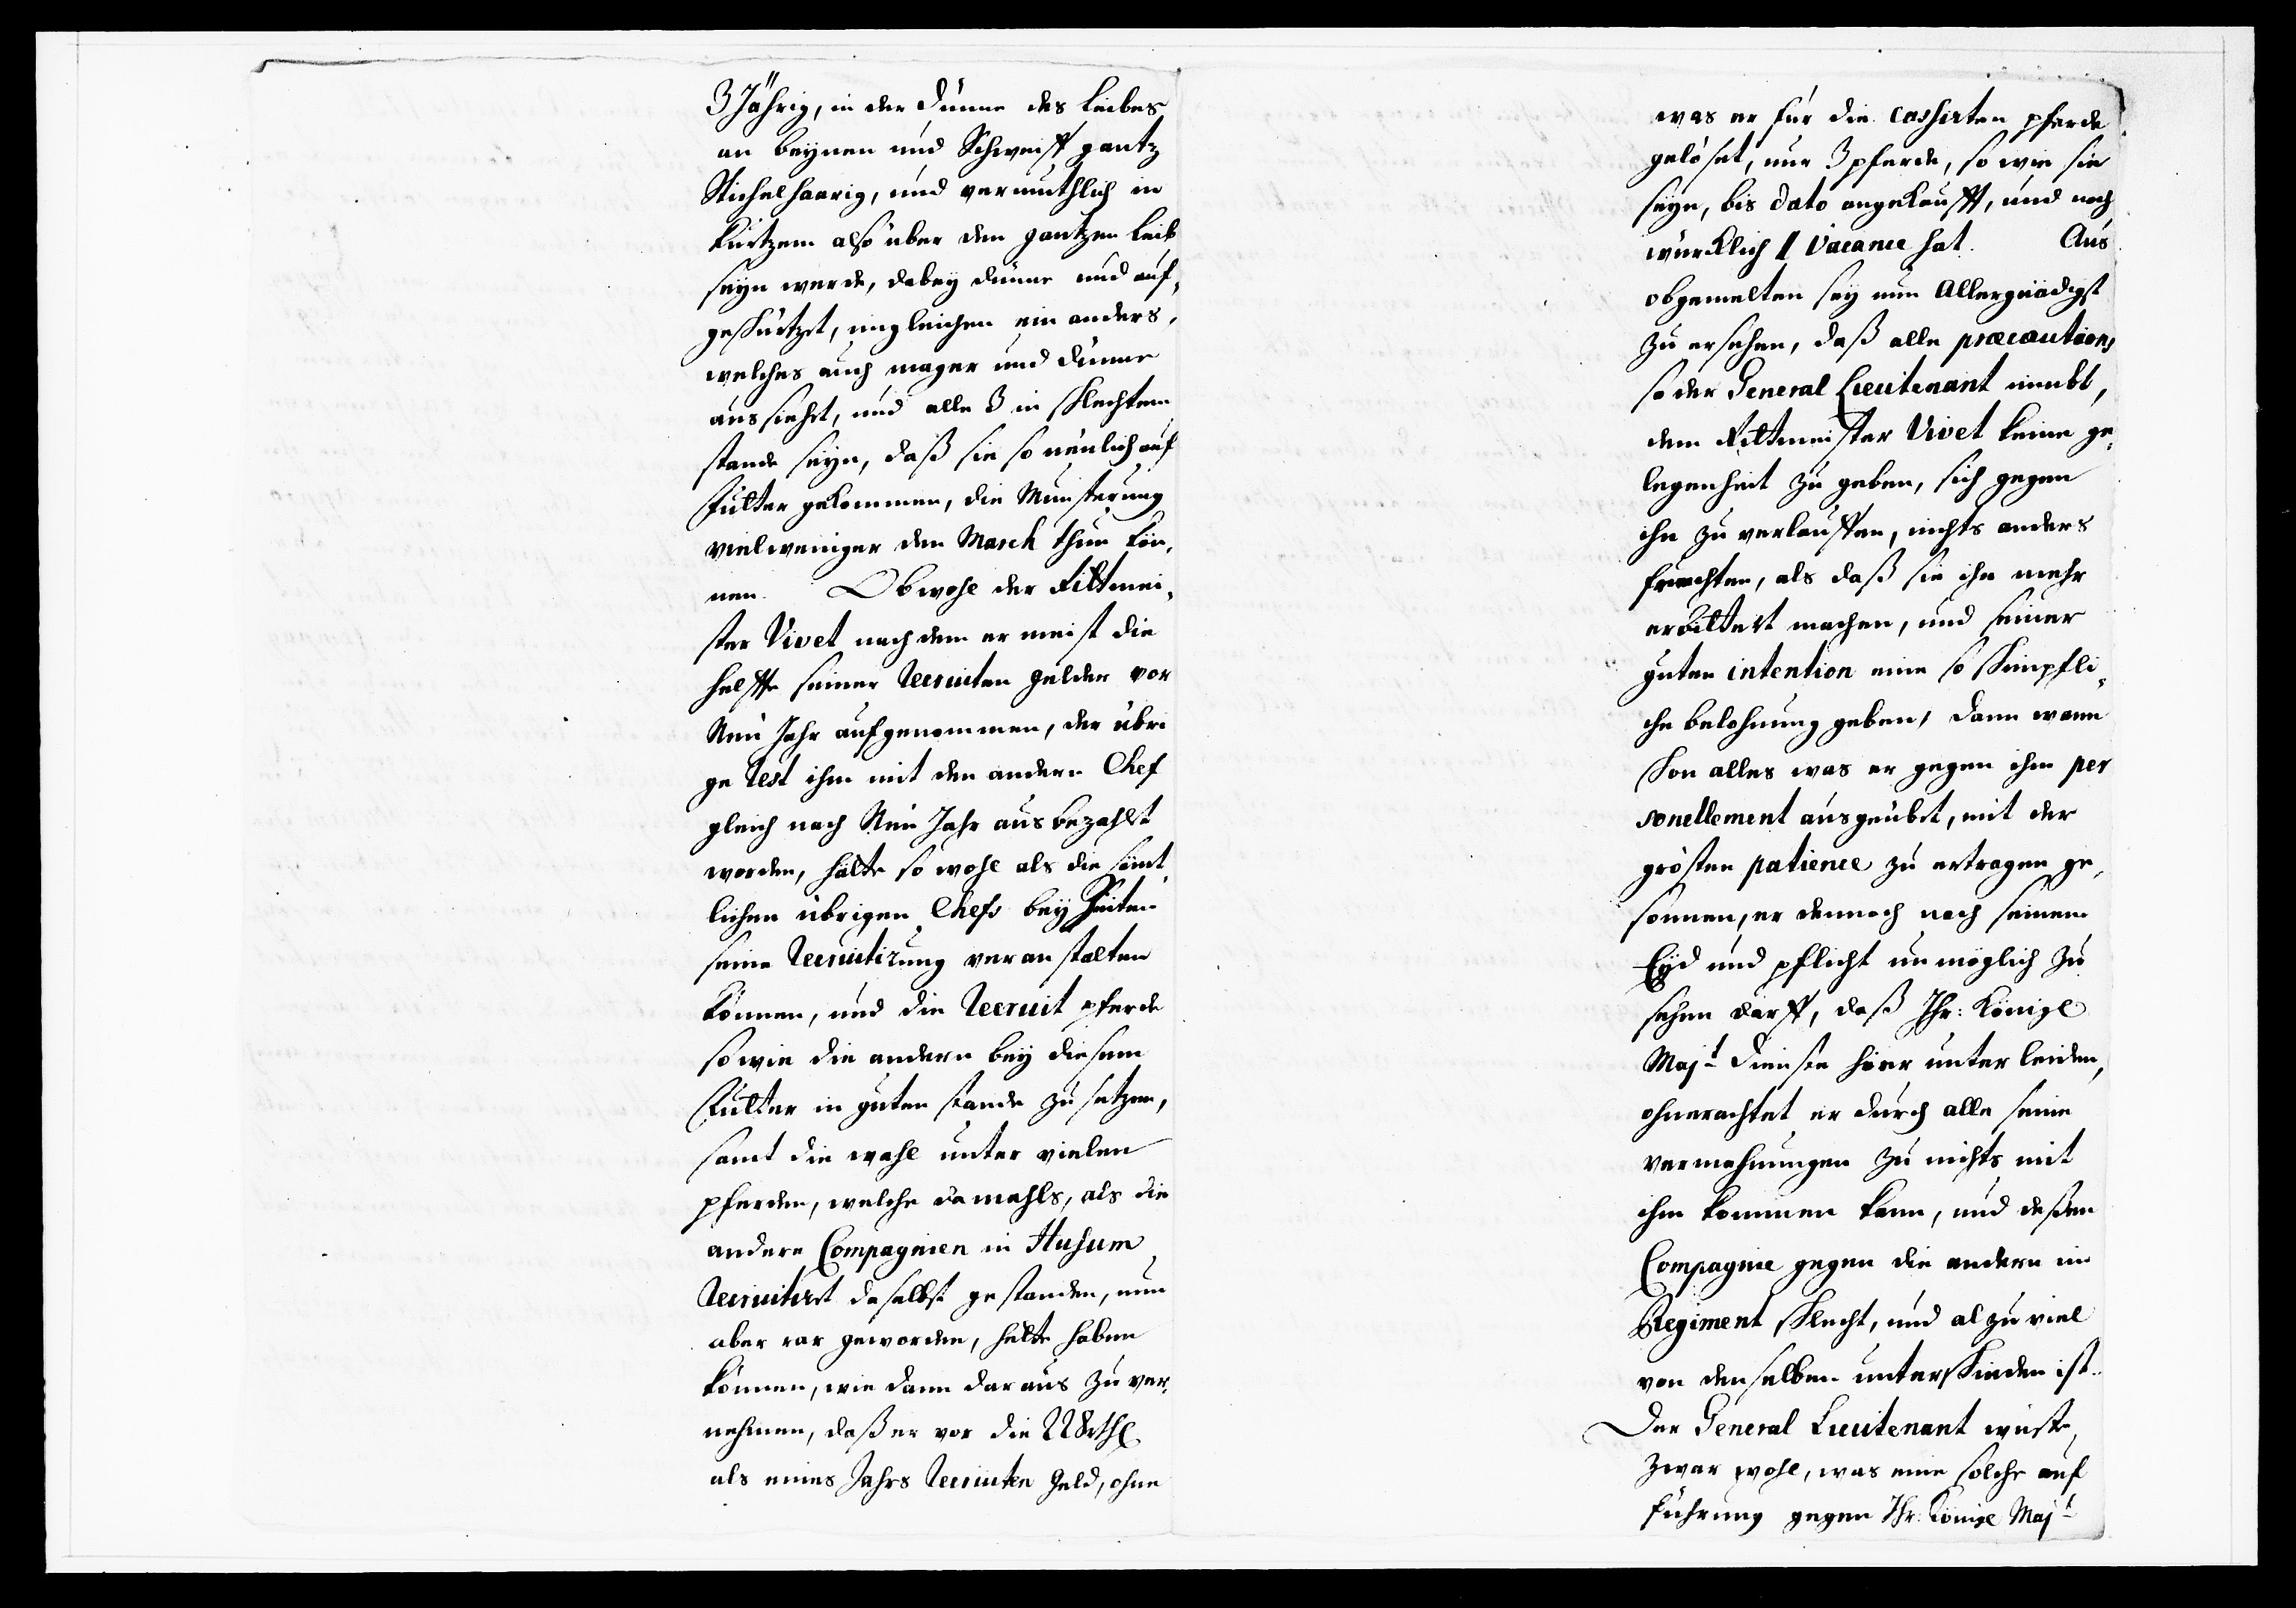 3 Jährig, in der dünne des Leibes
an beynen und Schweiff gantz
Stichelhaarig, und vermuthlich in
kurtzem also über den gantzen Leib
seyn werde, dabey dünne und auf¬
geschürtzet, ingleichen ein anders,
welches auch mager und dünne
aussiehet, und alle 3 in schlechtem
stande seyn, daß sie so neulich auf
Futter gekommen, die Munsterung
vielweniger den March thun kön¬
nen. Obwohl der Rittmei¬
ster Vivet nachdem er meist die
helffte seiner Recruiten gelder vor
Neu Jahr aufgenommen, der übri
ge Rest ihm mit den andern Chef
gleich nach Neu Jahr ausbezahlt
worden, hätte so wohl als die sämt¬
lichen übrigen Chefs bey Zeiten
seine Recruitirung veranstalten
können, und die Recruit pferde
sowie die andern bey diesem
Futter in guten stande zu setzen,
samt die wahl unter vielen
pferden, welche damahls, als die
andere Compagnien in Husum
Recruitiret daselbst gestanden, nun
aber rar geworden, hätte haben
können, wie dann daraus zu ver¬
nehmen, daß er vor die 228 rthl
als eines Jahrs Recruiten Geld, ohne
was er für die cassirten pferde
gelöset, nur 3 pferde, so wie sie
seyn, bis dato angekaufft, und noch
würcklich 1 Vacance hat. Aus
obgemelten sey nun Allergnädigst
zu ersehen, daß alle præcautions
so der General Lieutenant
dem Rittmeister Vivet keine ge¬
legenheit zu geben, sich gegen
ihn zu verlauffen, nichts anders
fruchten, als daß sie ihn mehr
erbittert machen, und seiner
guten intention eine so schimpfli¬
che belohnung geben, dann wann
schon alles was er gegen ihm per
sonellement ausgeübet, mit der
grösten patience zu ertragen ge¬
sonnen, er dennoch nach seinem
Eyd und pflicht unmöglich zu
sehen darff, daß Ihr: Königl
Majt Dienste hier unter leiden,
ohnerachtet er durch alle seine
vermahnungen zu nichts mit
ihm kommen kann, und deßen
Compagnie gegen die andern im
Regiment schlecht, und alzu viel
von denselben unterschieden ist.
Der General Lieutenant wüste
zwar wohl, was eine solche auf
führung gegen Ihr: Königl Majt